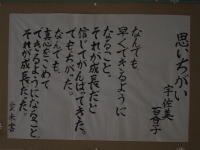 思いちがい
宇佐美百合子
なんでも
早くできるように
なること。
それが成長だと
信じてがんばってきた。
でもちがった。
なんでも、
真心をこめて
できるようになること。
それが成長だった。